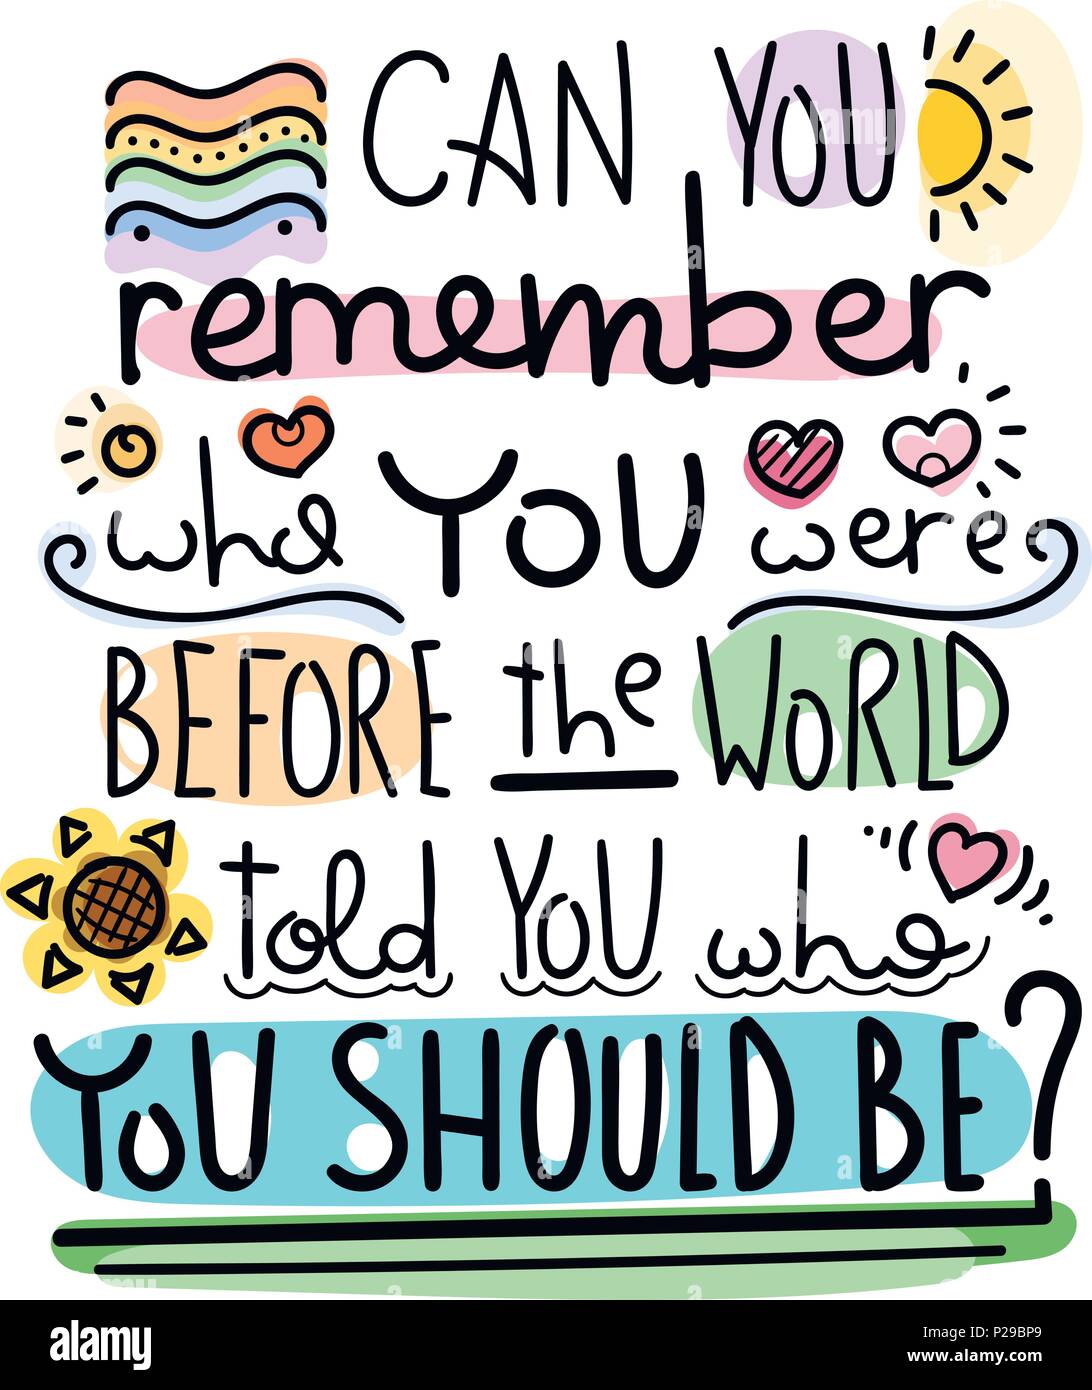 CAN YOU
remember
who YOU were
BEFORE the WORLD
told YOU who
YOU SHOULD BE?
alamy
Image ID: P29BP9
www.alamy.com